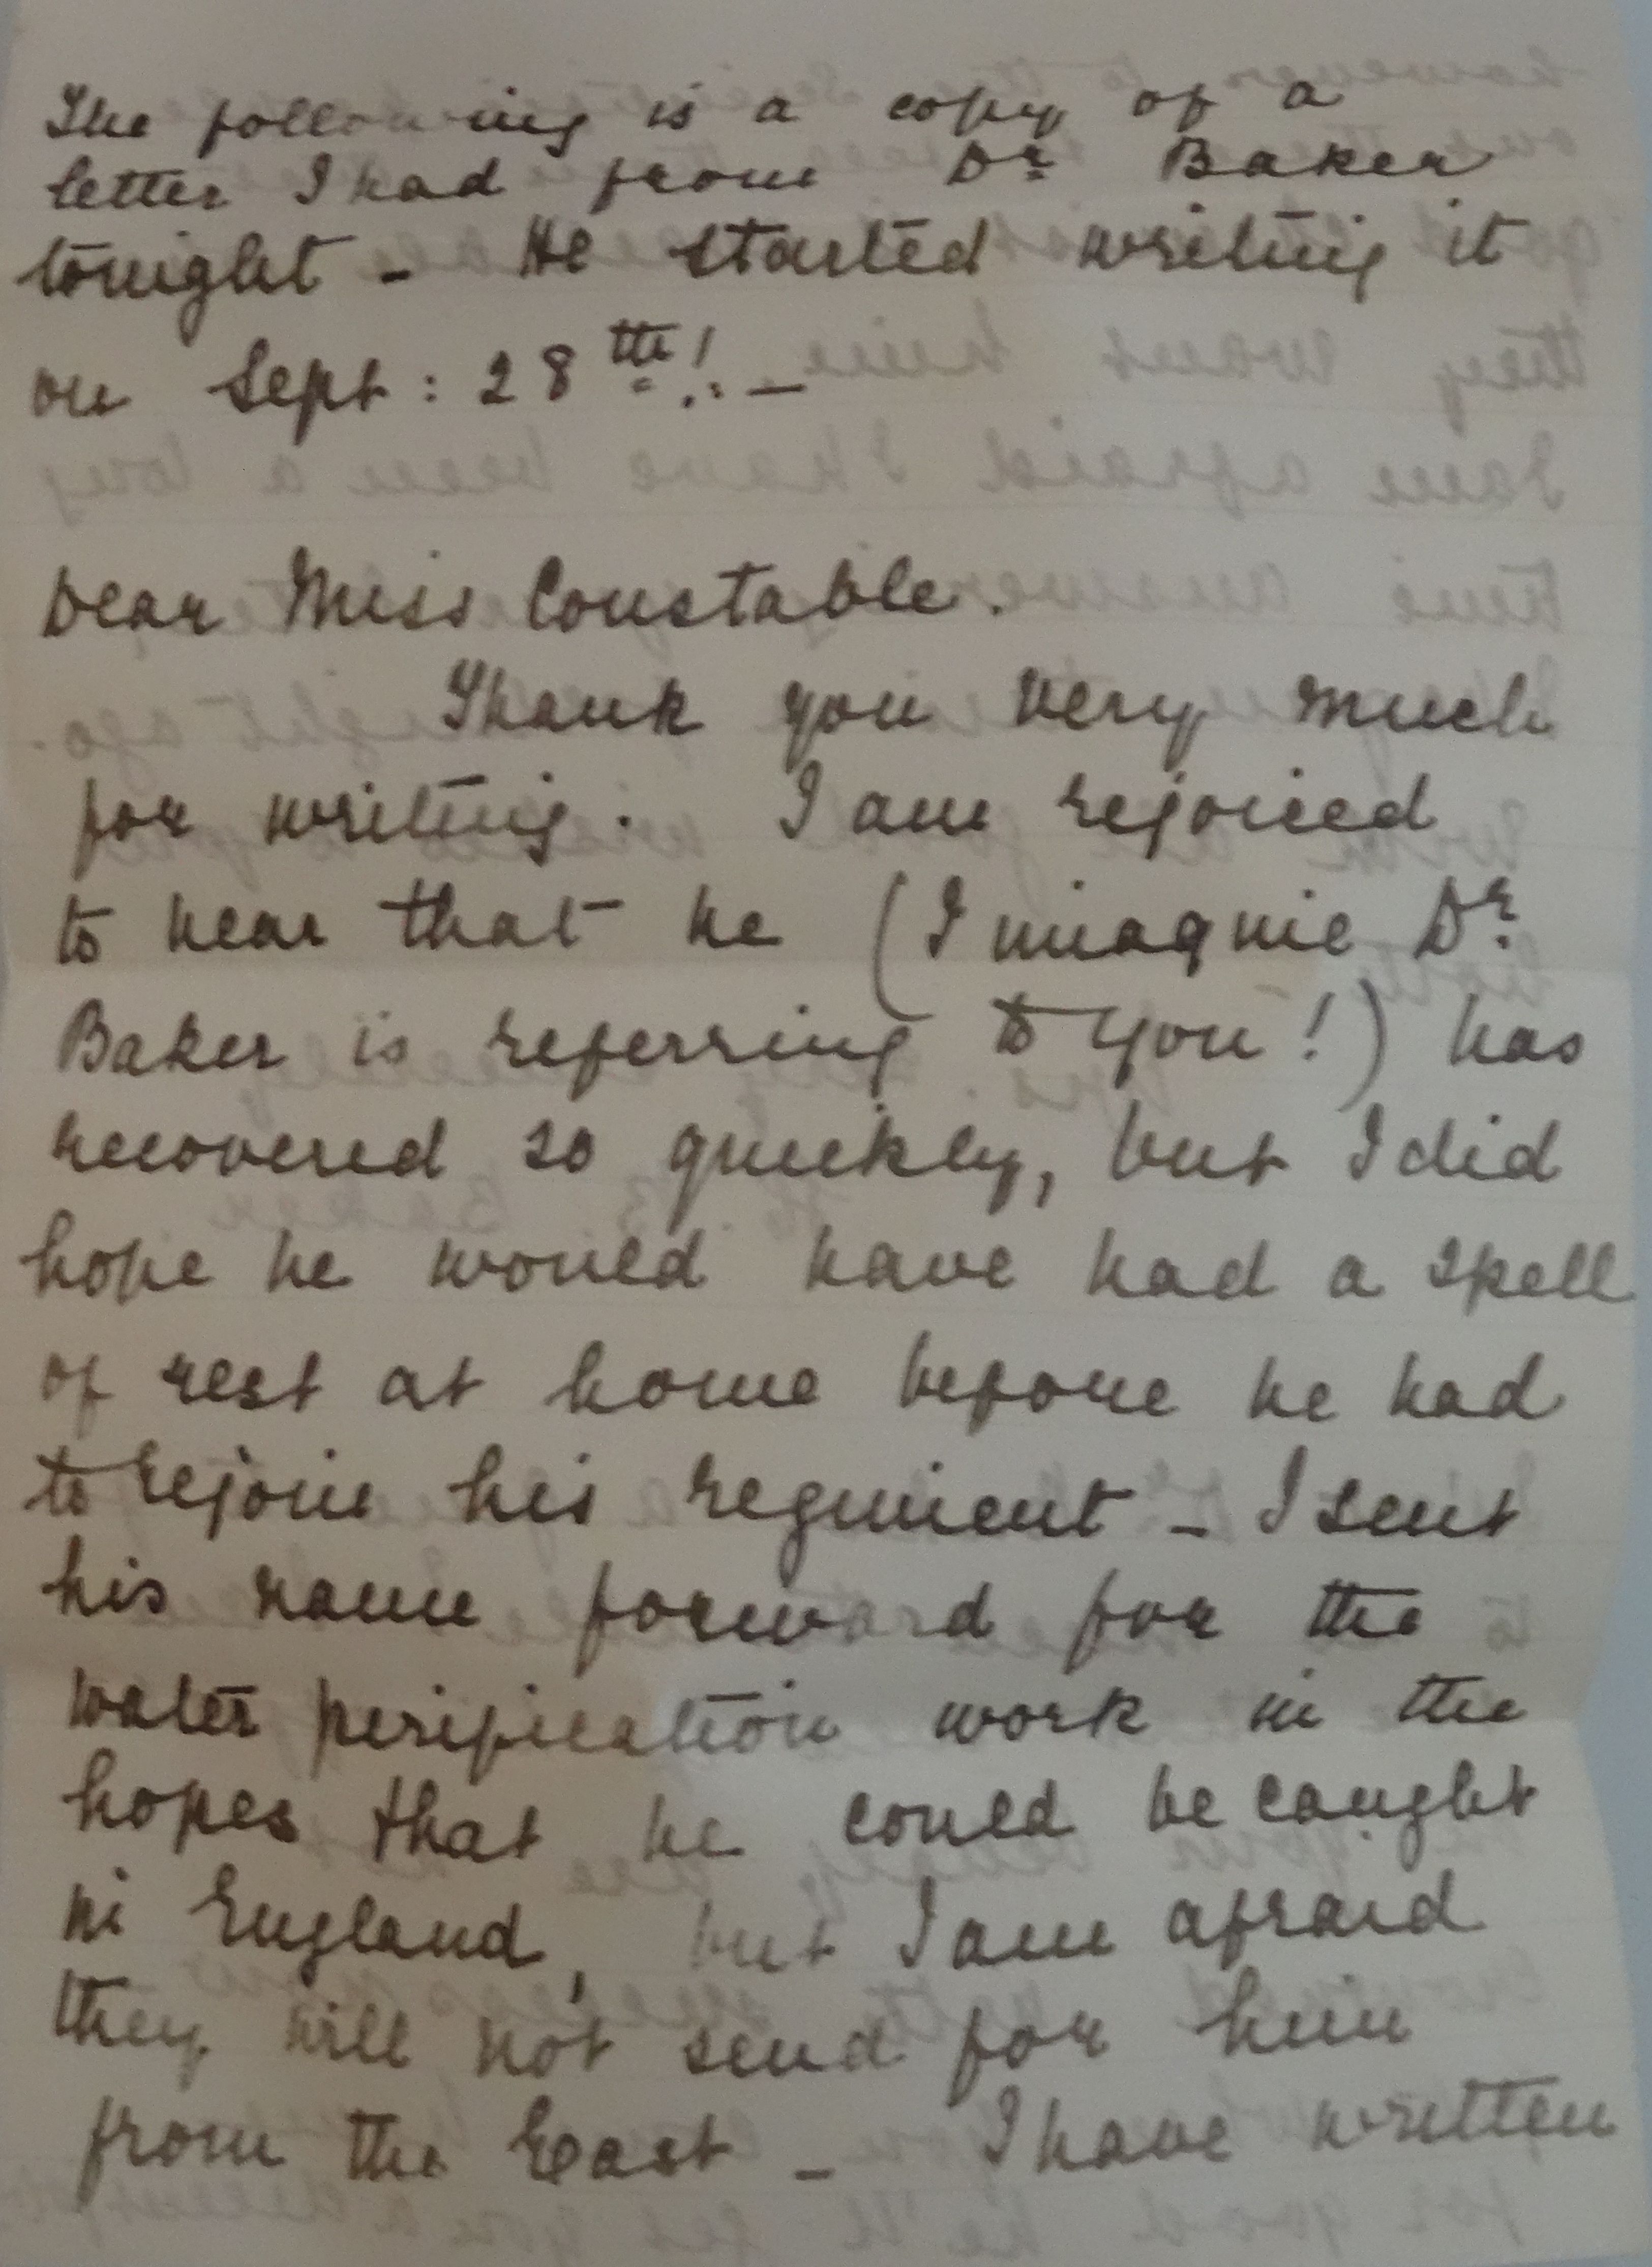 The following is a copy of a
letter I had from Dr Baker
tonight - He started writing it
on Sept: 28th! . –
Dear Miss Constable.
Thank you very much
for writing. I am rejoiced
to hear that he (I imagine Dr.
Baker is referring to you!) has
recovered so quickly, but I did
hope he would have had a spell
of rest at home before he had
to rejoin his regiment - I sent
his name forward for the
water perification work in the
hopes that he could be caught
in England, but I am afraid
they will not send for him
from the East - I have written